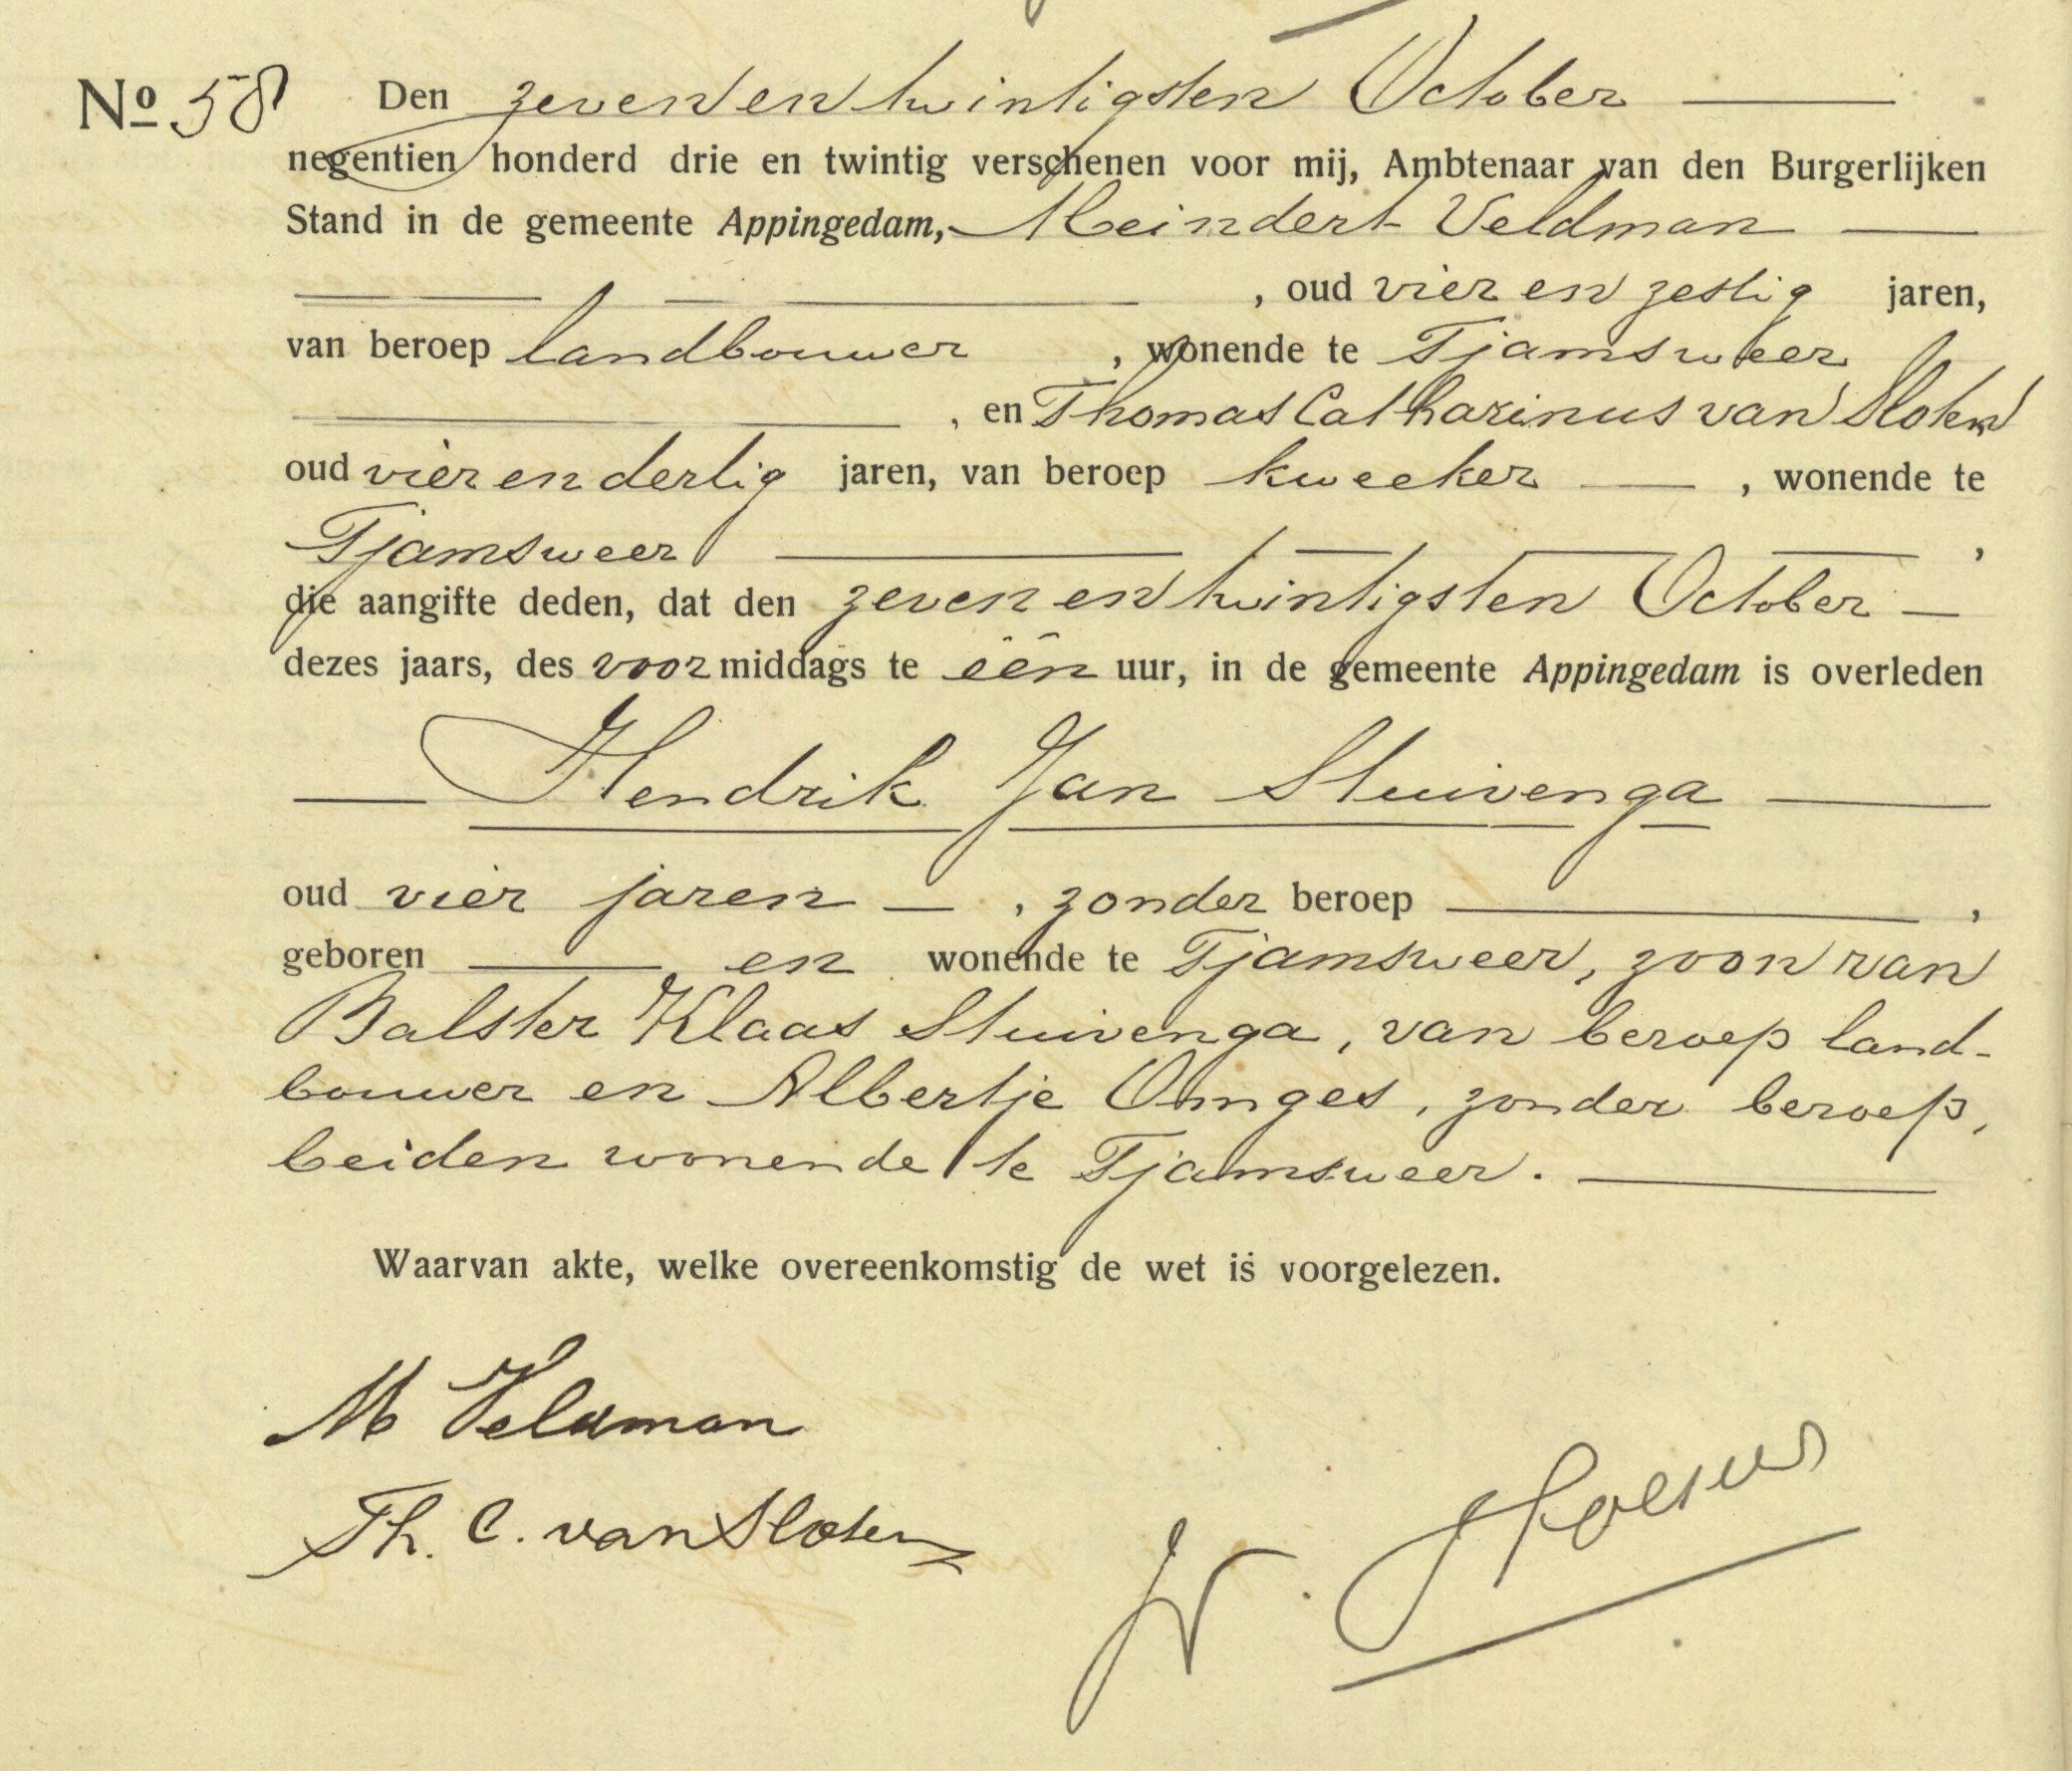 No 58 Den zeven en twintigsten October
negentien honderd drie en twintig verschenen voor mij, Ambtenaar van den Burgerlijken
Stand in de gemeente Appingedam, Meindert Veldman
, oud vier en zestig jaren,
van beroep landbouwer , wonende te Tjamsweer
, en Thomas Catharinus van Sloten
oud vier en dertig jaren, van beroep kweeker , wonende te
Tjamsweer ,
die aangifte deden, dat den zeven en twintigsten October
dezes jaars, des voormiddags te één uur, in de gemeente Appingedam is overleden
Hendrik Jan Stuivenga
oud vier jaren , zonder beroep ,
geboren en wonende te Tjamsweer, zoon van
Balster Klaas Stuivenga, van beroep land-
bouwer en Albertje Omges, zonder beroep,
beiden wonende te Tjamsweer.
Waarvan akte, welke overeenkomstig de wet is voorgelezen.
M Veldman
Th. C. van Sloten